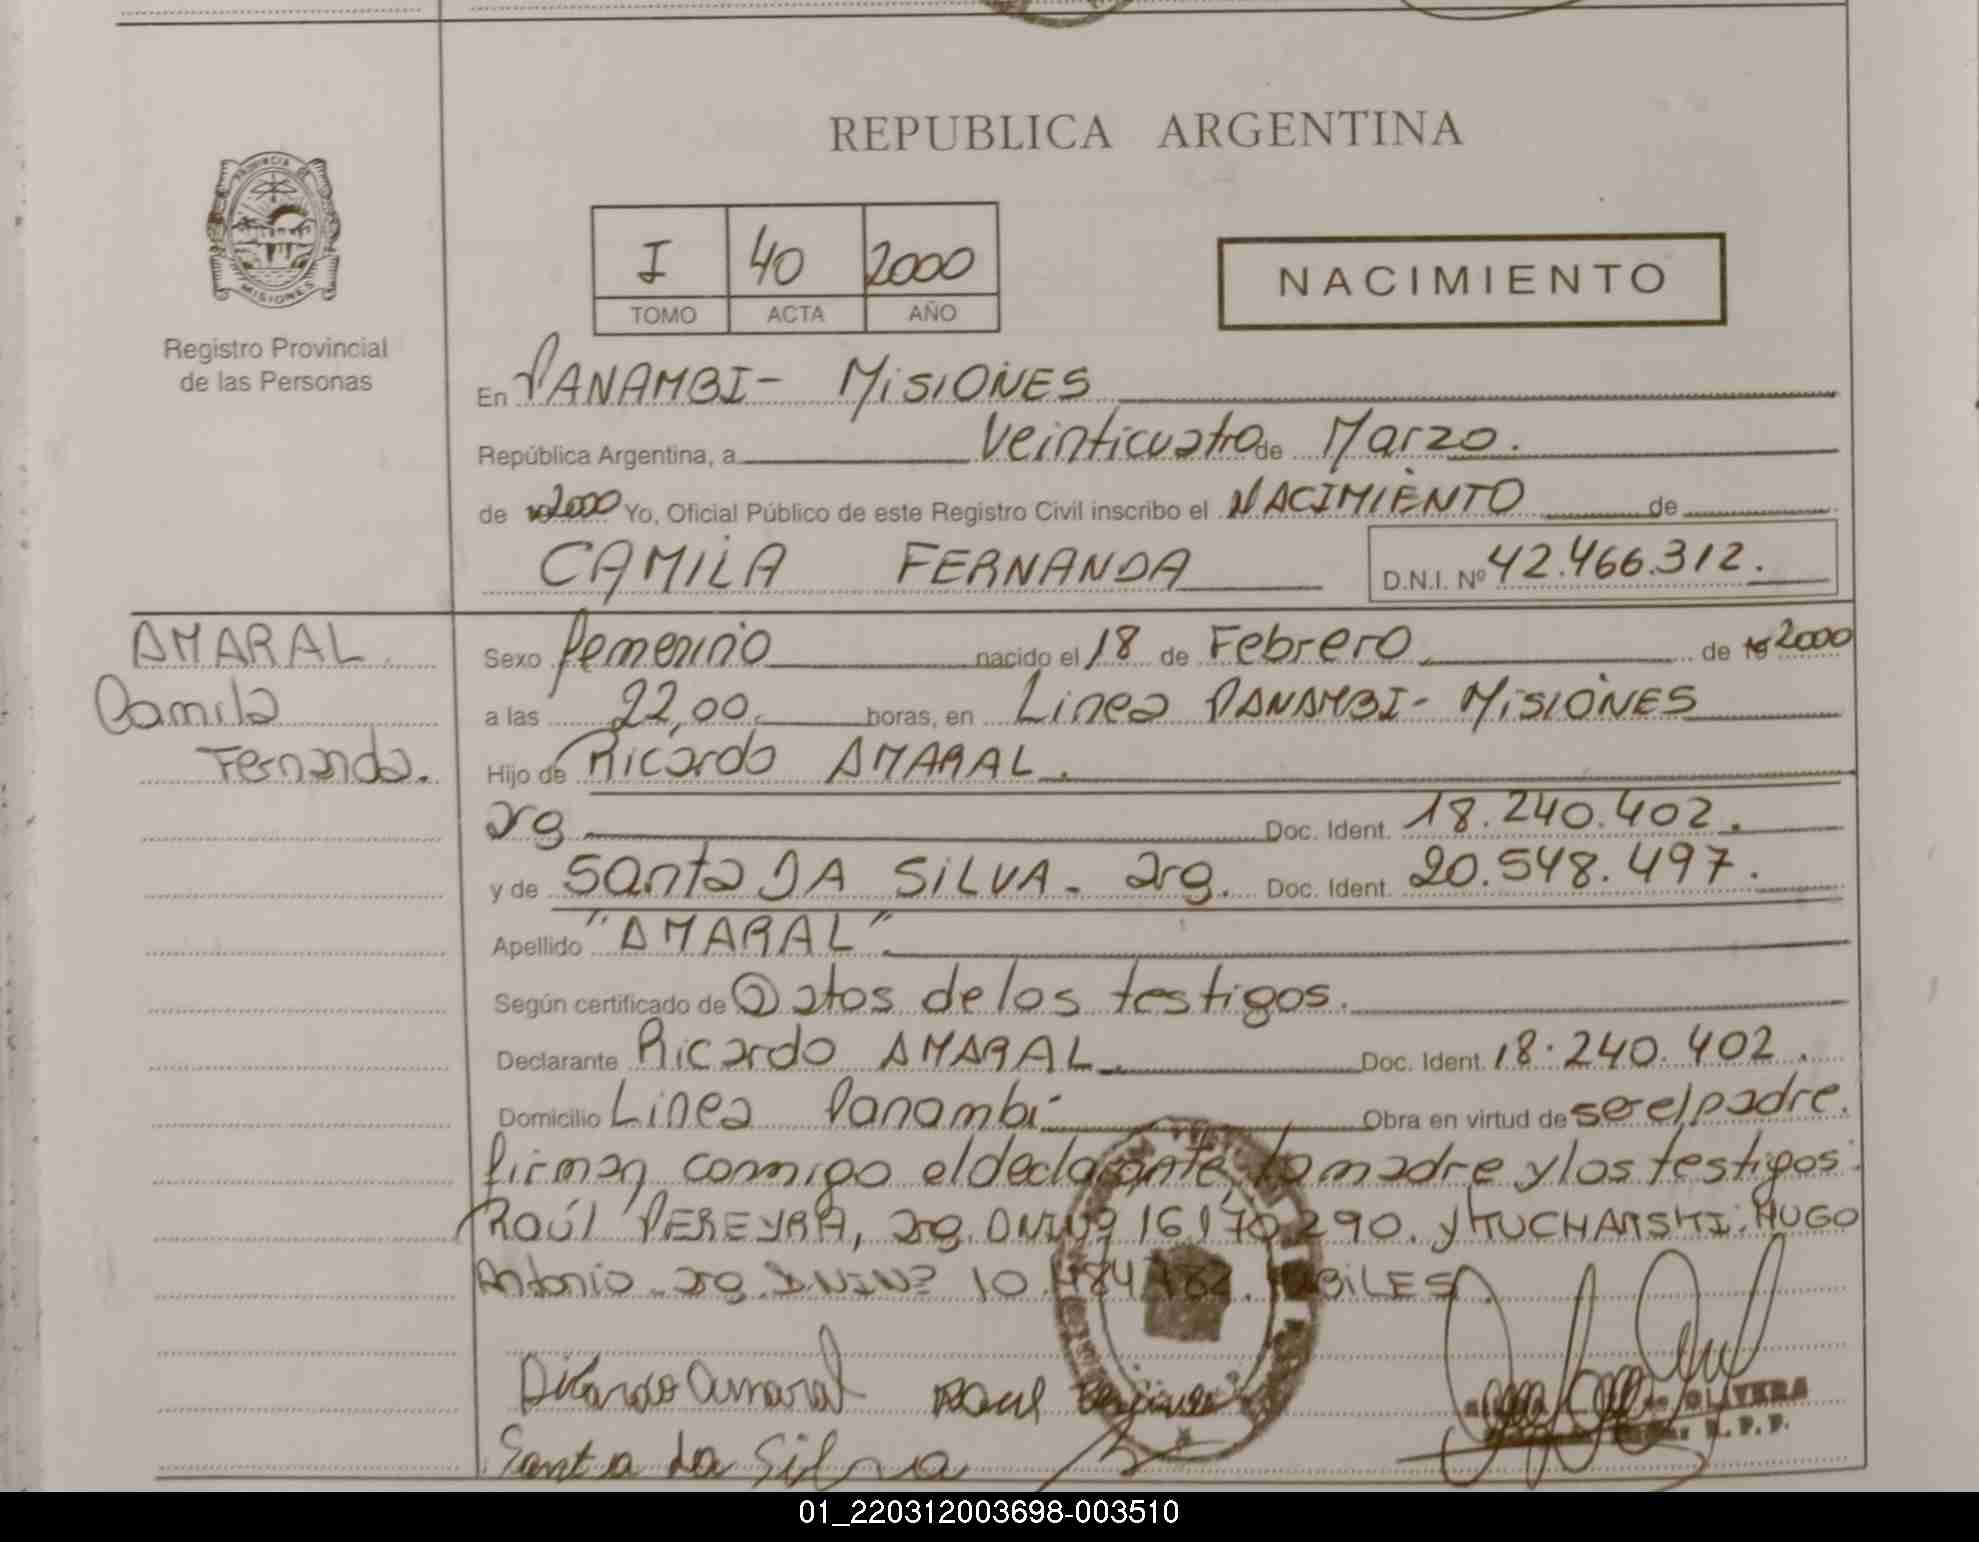 REPUBLICA ARGENTINA
PROVINCIA DE
MISIONES
Registro Provincial
de las Personas
I 40 2000
TOMO ACTA AÑO
NACIMIENTO
En PANAMBI - MISIONES
República Argentina, a Veinticuatro de Marzo.
de 2000 Yo, Oficial Público de este Registro Civil inscribo el NACIMIENTO de
CAMILA FERNANDA D.N.I. Nº 42.466.312.
AMARAL
Camila
Fernanda.
Sexo femenino nacido el 18 de Febrero de 19 2000
a las 22,00 horas, en Linea PANAMBI - MISIONES
Hijo de Ricardo AMARAL.
arg Doc. Ident. 18.240.402.
y de Santa DA SILVA. arg. Doc. Ident. 20.548.497.
Apellido "AMARAL"
Según certificado de Datos de los testigos.
Declarante Ricardo AMARAL. Doc. Ident. 18.240.402.
Domicilio Linea Panambi Obra en virtud de ser el padre.
firman conmigo el declarante, la madre y los testigos:
RAÚL PEREYRA, arg. DNI Nº 16.170.290. y KUCHARSKI. HUGO
Antonio arg. DNI Nº 10. HABILES.
Ricardo Amaral Raul
Santa da Silva
OLIVERA
R.P.P.
01_220312003698-003510